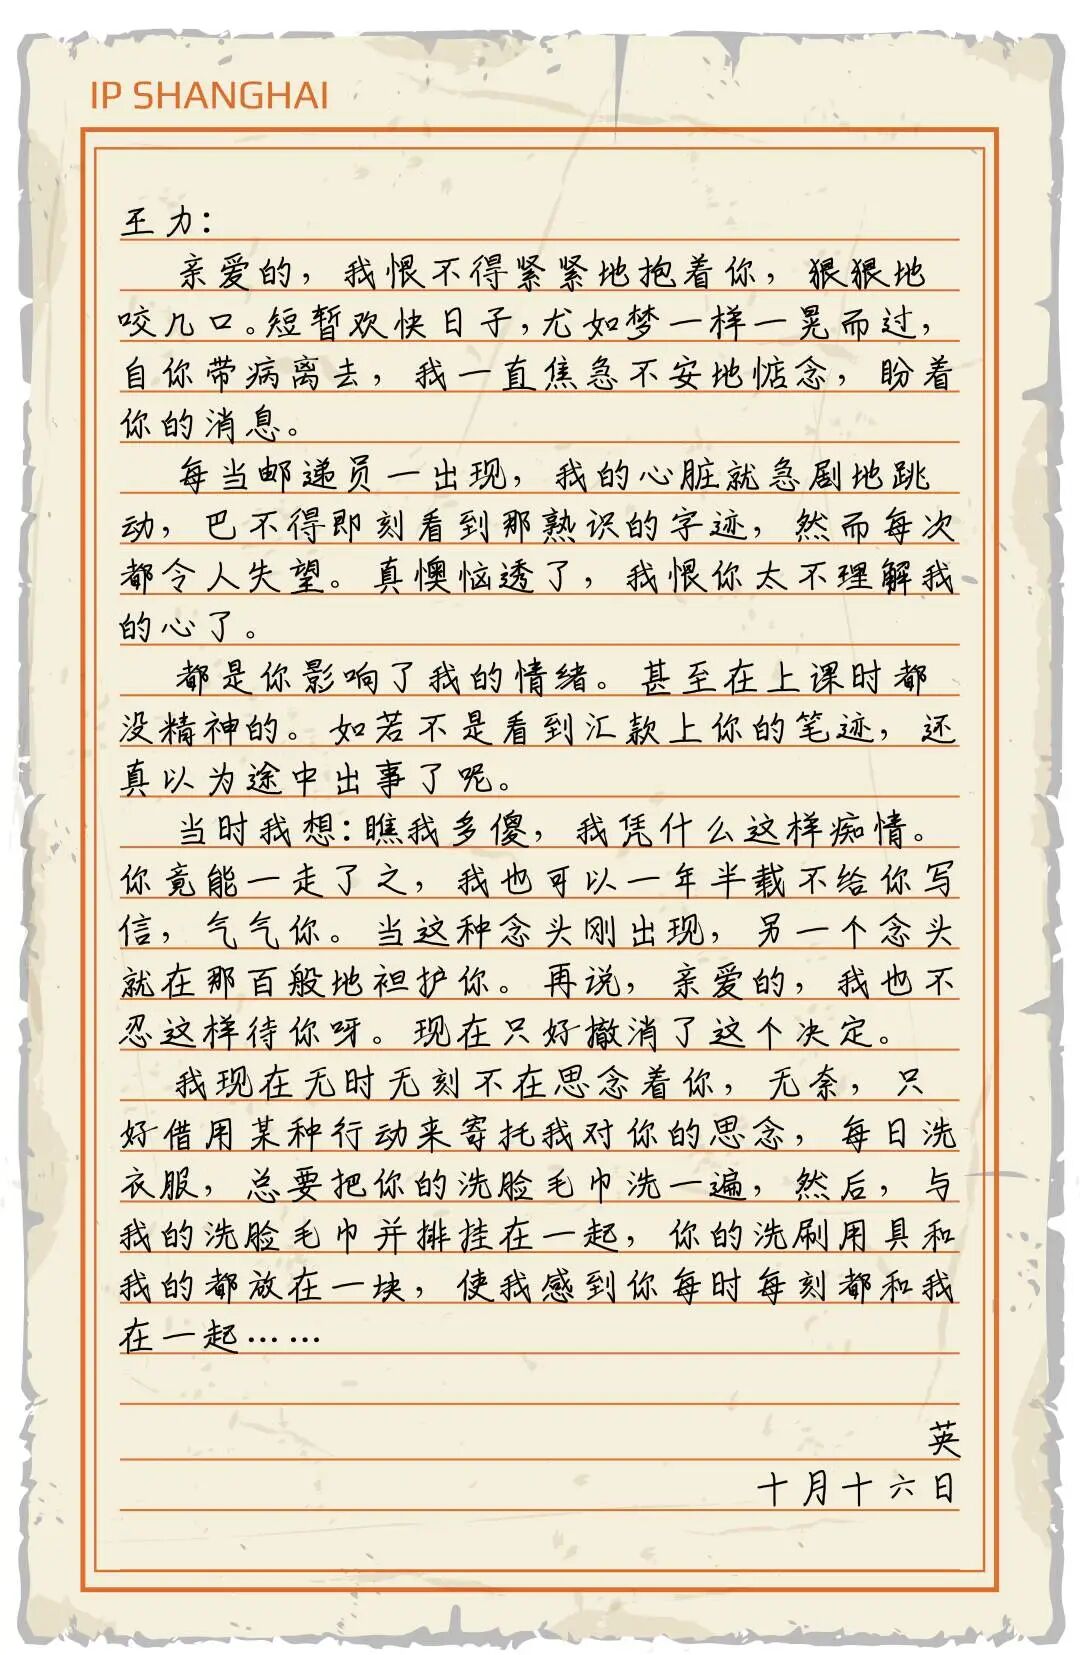 IP SHANGHAI
王力：
亲爱的，我恨不得紧紧地抱着你，狠狠地
咬几口。短暂欢快日子，尤如梦一样一晃而过，
自你带病离去，我一直焦急不安地惦念，盼着
你的消息。
每当邮递员一出现，我的心脏就急剧地跳
动，巴不得即刻看到那熟识的字迹，然而每次
都令人失望。真懊恼透了，我恨你太不理解我
的心了。
都是你影响了我的情绪。甚至在上课时都
没精神的。如若不是看到汇款上你的笔迹，还
真以为途中出事了呢。
当时我想：瞧我多傻，我凭什么这样痴情。
你竟能一走了之，我也可以一年半载不给你写
信，气气你。当这种念头刚出现，另一个念头
就在那百般地袒护你。再说，亲爱的，我也不
忍这样待你呀。现在只好撤消了这个决定。
我现在无时无刻不在思念着你，无奈，只
好借用某种行动来寄托我对你的思念，每日洗
衣服，总要把你的洗脸毛巾洗一遍，然后，与
我的洗脸毛巾并排挂在一起，你的洗刷用具和
我的都放在一块，使我感到你每时每刻都和我
在一起……
英
十月十六日